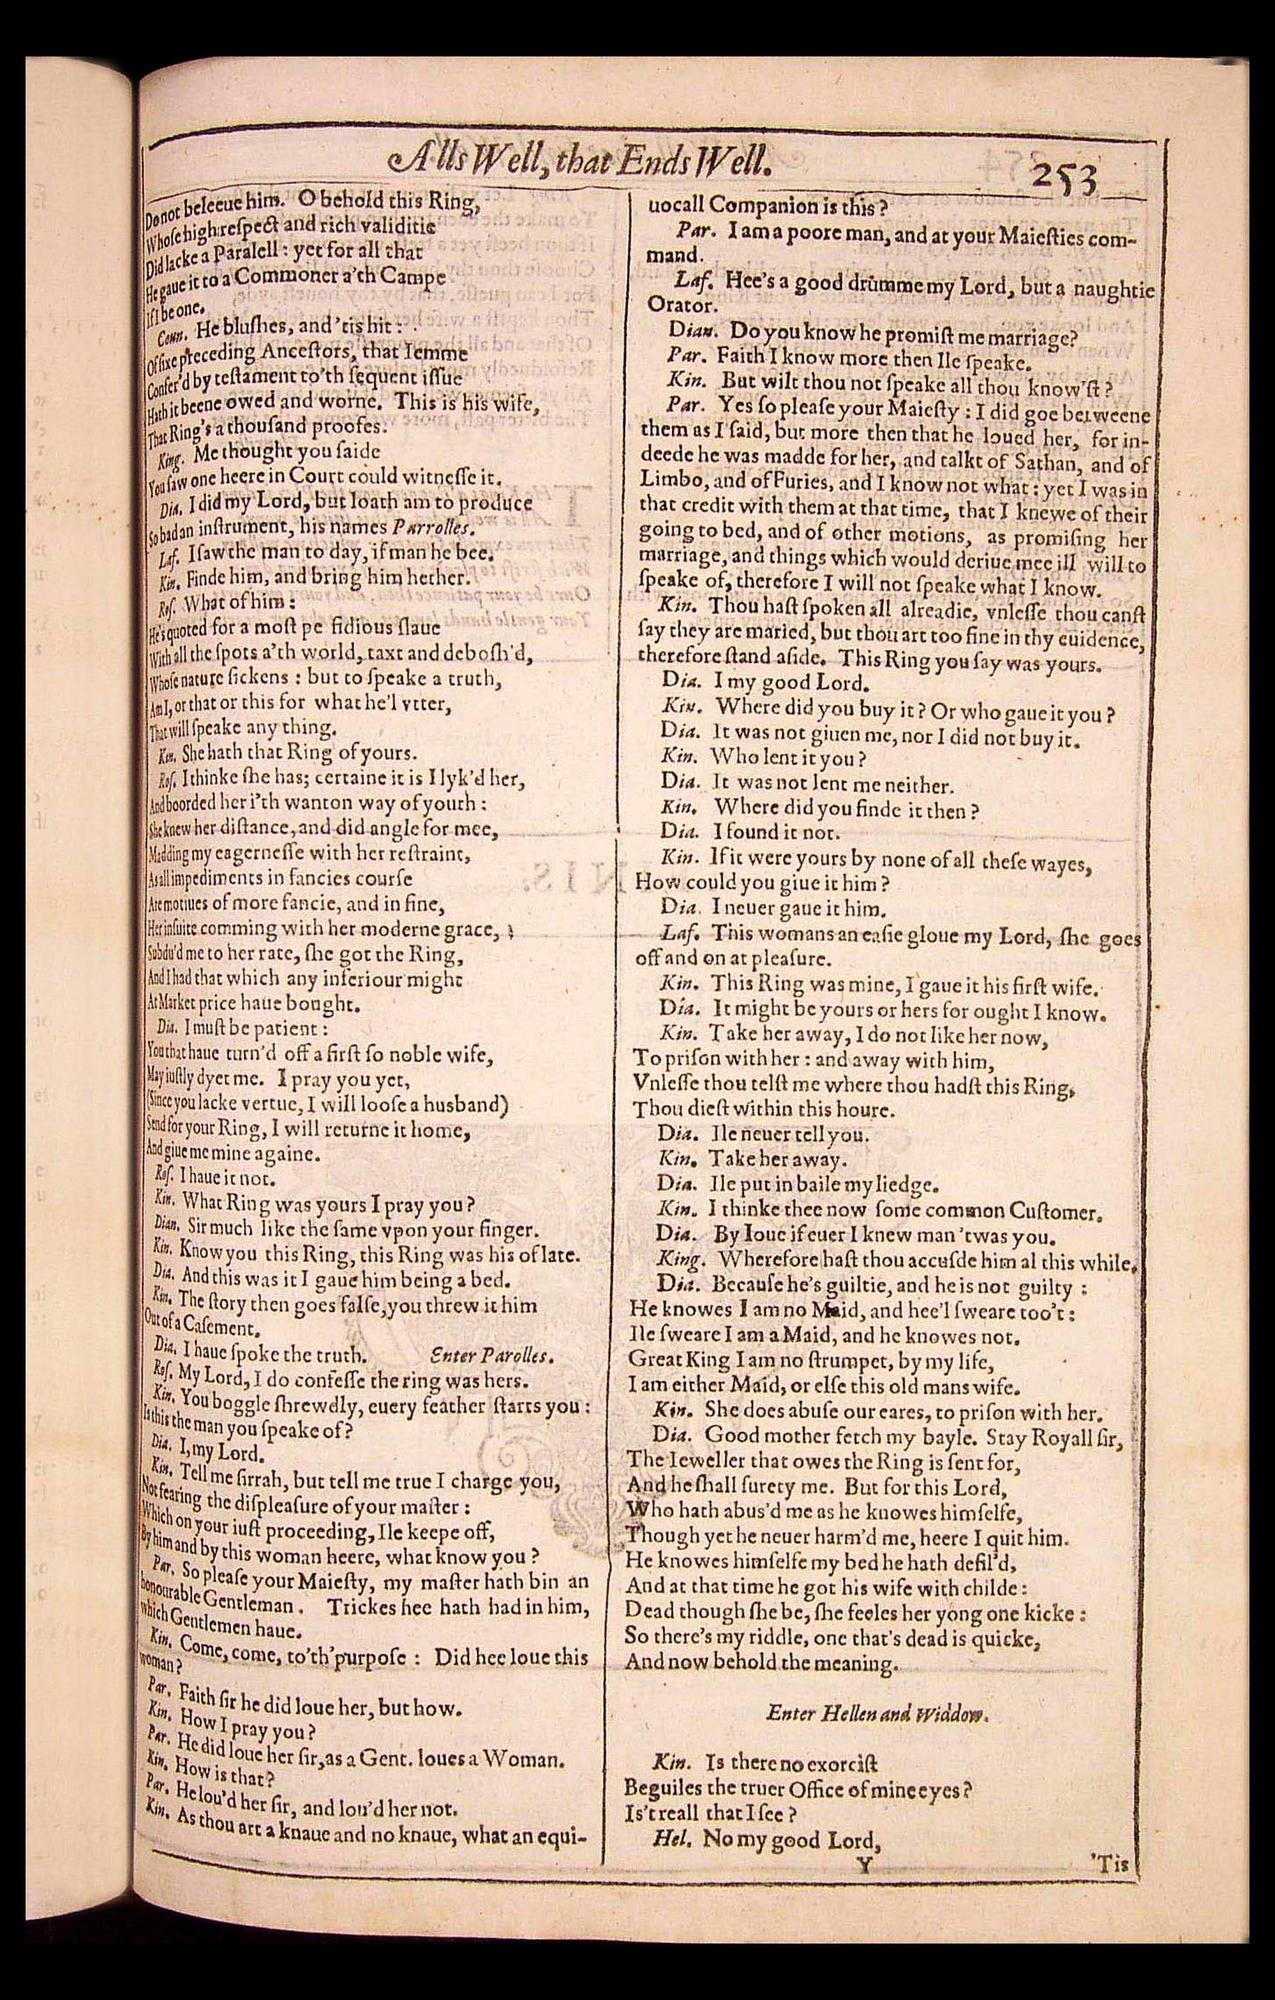 Alls Well, that Ends Well. 253
Do not beleeue him. O behold this Ring,
Whose high respect and rich validitie
Did lacke a Paralell: yet for all that
He gaue it to a Commoner a'th Campe
If I be one.
Coun. He blushes, and 'tis hit:
Of sixe preceding Ancestors, that Iemme
Confer'd by testament to'th sequent issue
Hath it beene owed and worne. This is his wife,
That Ring's a thousand proofes.
King. Me thought you saide
You saw one heere in Court could witnesse it.
Dia. I did my Lord, but loath am to produce
So bad an instrument, his names Parrolles.
Laf. I saw the man to day, if man he bee.
Kin. Finde him, and bring him hether.
Ros. What of him:
He's quoted for a most pe fidious slaue
With all the spots a'th world, taxt and debosh'd,
Whose nature sickens: but to speake a truth,
Am I, or that or this for what he'l vtter,
That will speake any thing.
Kin. She hath that Ring of yours.
Ros. I thinke she has; certaine it is I lyk'd her,
And boorded her i'th wanton way of youth:
She knew her distance, and did angle for mee,
Madding my eagernesse with her restraint,
As all impediments in fancies course
Are motiues of more fancie, and in fine,
Her insuite comming with her moderne grace,
Subdu'd me to her rate, she got the Ring,
And I had that which any inferiour might
At Market price haue bought.
Dia. I must be patient:
You that haue turn'd off a first so noble wife,
May iustly dyet me. I pray you yet,
(Since you lacke vertue, I will loose a husband)
Send for your Ring, I will returne it home,
And giue me mine againe.
Ros. I haue it not.
Kin. What Ring was yours I pray you?
Dian. Sir much like the same vpon your finger.
Kin. Know you this Ring, this Ring was his of late.
Dia. And this was it I gaue him being a bed.
Kin. The story then goes false, you threw it him
Out of a Casement.
Dia. I haue spoke the truth. Enter Parolles.
Ros. My Lord, I do confesse the ring was hers.
Kin. You boggle shrewdly, euery feather starts you:
Is this the man you speake of?
Dia. I, my Lord.
Kin. Tell me sirrah, but tell me true I charge you,
Not fearing the displeasure of your master:
Which on your iust proceeding, Ile keepe off,
By him and by this woman heere, what know you?
Par. So please your Maiesty, my master hath bin an
honourable Gentleman. Trickes hee hath had in him,
which Gentlemen haue.
Kin. Come, come, to'th'purpose: Did hee loue this
woman?
Par. Faith sir he did loue her, but how.
Kin. How I pray you?
Par. He did loue her sir, as a Gent. loues a Woman.
Kin. How is that?
Par. He lou'd her sir, and lou'd her not.
Kin. As thou art a knaue and no knaue, what an equi-
uocall Companion is this?
Par. I am a poore man, and at your Maiesties com-
mand.
Laf. Hee's a good drumme my Lord, but a naughtie
Orator.
Dian. Do you know he promist me marriage?
Par. Faith I know more then Ile speake.
Kin. But wilt thou not speake all thou know'st?
Par. Yes so please your Maiesty: I did goe betweene
them as I said, but more then that he loued her, for in-
deede he was madde for her, and talkt of Sathan, and of
Limbo, and of Furies, and I know not what: yet I was in
that credit with them at that time, that I knewe of their
going to bed, and of other motions, as promising her
marriage, and things which would deriue mee ill will to
speake of, therefore I will not speake what I know.
Kin. Thou hast spoken all alreadie, vnlesse thou canst
say they are maried, but thou art too fine in thy euidence,
therefore stand aside. This Ring you say was yours.
Dia. I my good Lord.
Kin. Where did you buy it? Or who gaue it you?
Dia. It was not giuen me, nor I did not buy it.
Kin. Who lent it you?
Dia. It was not lent me neither.
Kin. Where did you finde it then?
Dia. I found it not.
Kin. If it were yours by none of all these wayes,
How could you giue it him?
Dia. I neuer gaue it him.
Laf. This womans an easie gloue my Lord, she goes
off and on at pleasure.
Kin. This Ring was mine, I gaue it his first wife.
Dia. It might be yours or hers for ought I know.
Kin. Take her away, I do not like her now,
To prison with her: and away with him,
Vnlesse thou telst me where thou hadst this Ring,
Thou diest within this houre.
Dia. Ile neuer tell you.
Kin. Take her away.
Dia. Ile put in baile my liedge.
Kin. I thinke thee now some common Customer.
Dia. By Ioue if euer I knew man 'twas you.
King. Wherefore hast thou accusde him al this while.
Dia. Because he's guiltie, and he is not guilty:
He knowes I am no Maid, and hee'l sweare too't:
Ile sweare I am a Maid, and he knowes not.
Great King I am no strumpet, by my life,
I am either Maid, or else this old mans wife.
Kin. She does abuse our eares, to prison with her.
Dia. Good mother fetch my bayle. Stay Royall sir,
The Ieweller that owes the Ring is sent for,
And he shall surety me. But for this Lord,
Who hath abus'd me as he knowes himselfe,
Though yet he neuer harm'd me, heere I quit him.
He knowes himselfe my bed he hath defil'd,
And at that time he got his wife with childe:
Dead though she be, she feeles her yong one kicke:
So there's my riddle, one that's dead is quicke,
And now behold the meaning.
Enter Hellen and Widdow.
Kin. Is there no exorcist
Beguiles the truer Office of mine eyes?
Is't reall that I see?
Hel. No my good Lord,
Y 'Tis